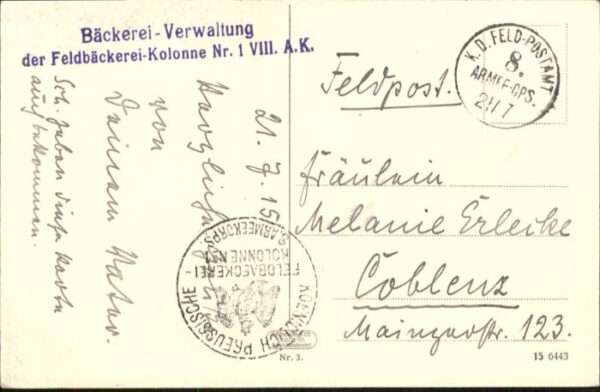 Bäckerei-Verwaltung
der Feldbäckerei-Kolonne Nr. 1 VIII. A.K.
21. 7. 15
Herzlichen
von
Deinem Vater.
Ich habe diese Karte
auch bekommen.
KOENIGLICH PREUSSISCHE
FELDBAECKEREI-
KOLONNE Nº1
8.ARMEEKORPS
K.D. FELD-POSTAMT
8.
ARMEE-CPS.
21/7
Feldpost.
Fräulein
Melanie Erlecke
Coblenz
Mainzerstr. 123.
Nr. 3.
15 6443